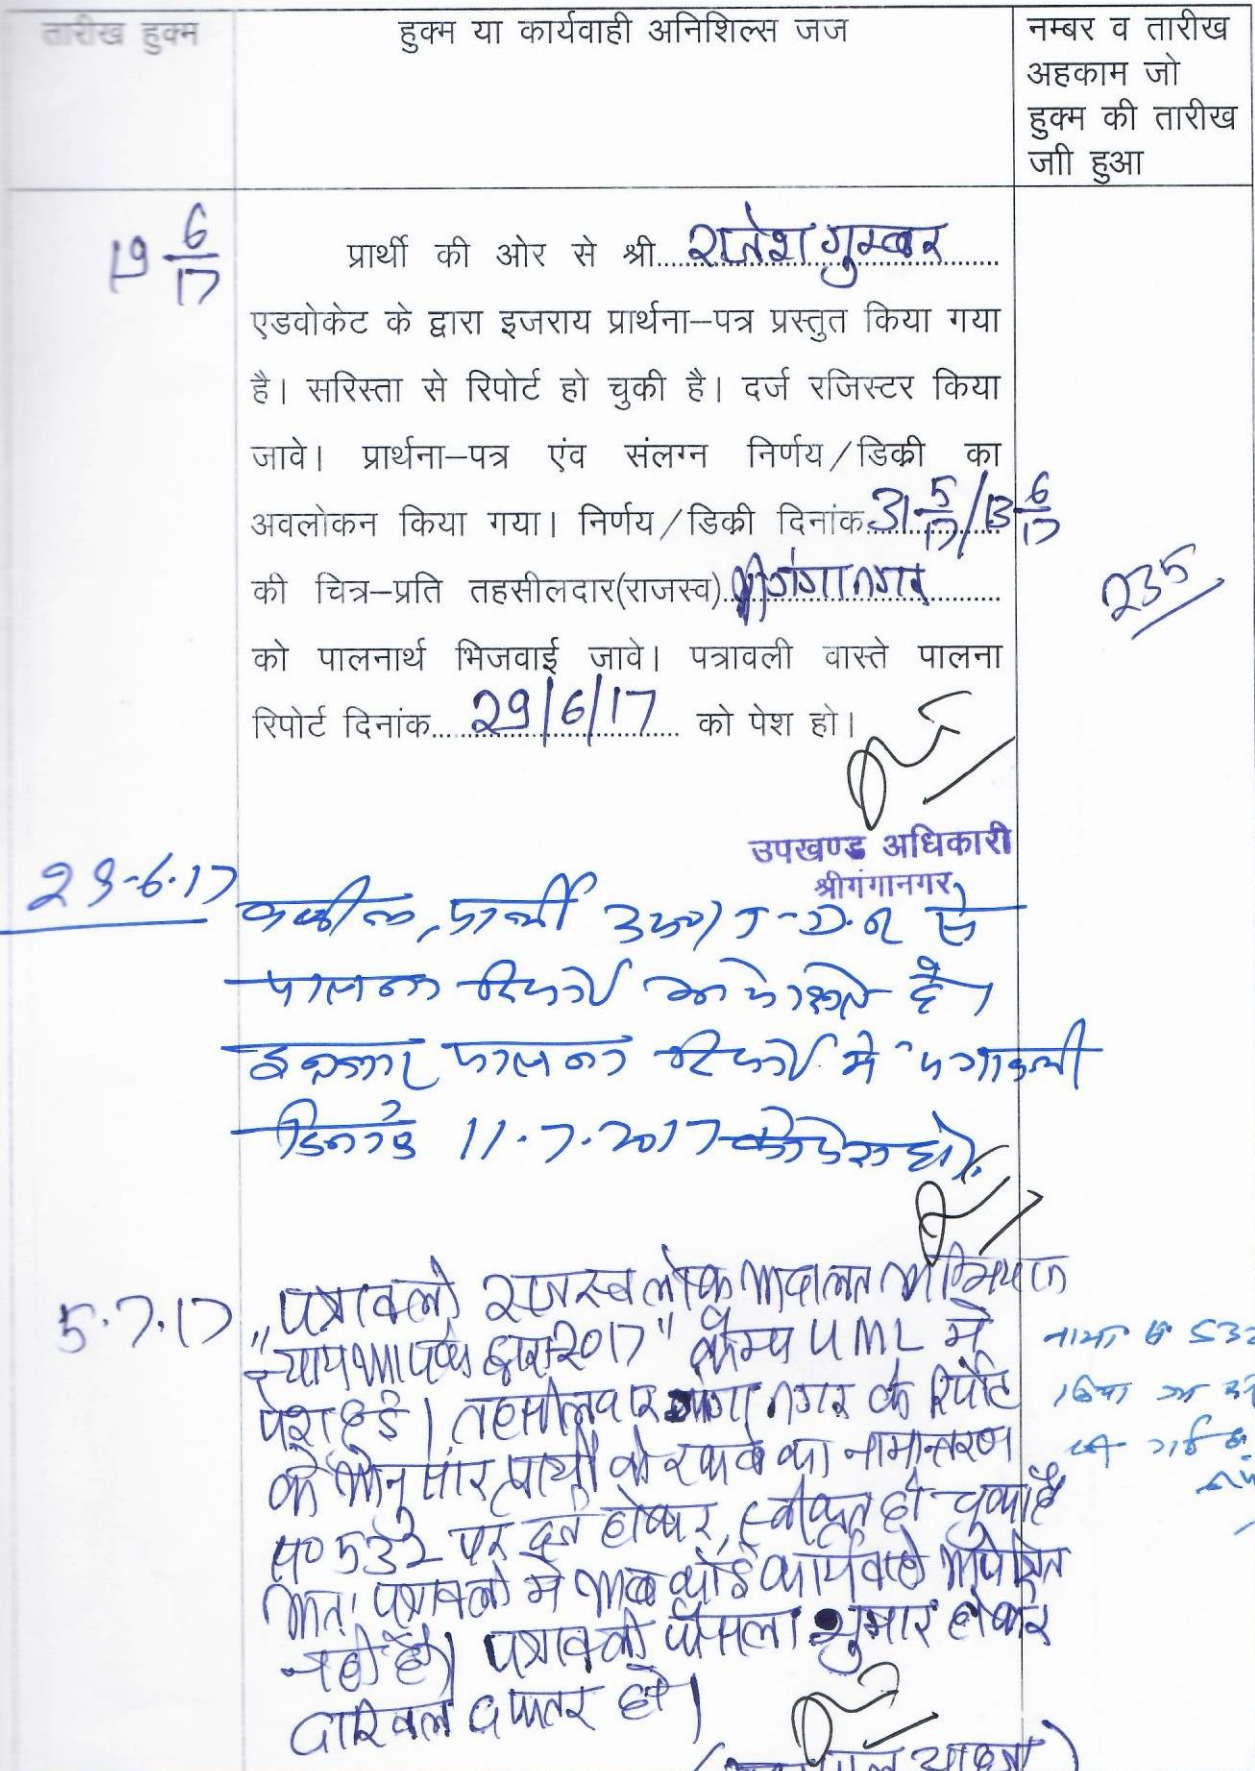 तारीख हुक्म
हुक्म या कार्यवाही अनिशिल्स जज
नम्बर व तारीख
अहकाम जो
हुक्म की तारीख
जाी हुआ
19 6/17
प्रार्थी की ओर से श्री....राजेश गुम्बर....
एडवोकेट के द्वारा इजराय प्रार्थना–पत्र प्रस्तुत किया गया
है। सरिस्ता से रिपोर्ट हो चुकी है। दर्ज रजिस्टर किया
जावे। प्रार्थना–पत्र एंव संलग्न निर्णय/डिक्री का
अवलोकन किया गया। निर्णय/डिक्री दिनांक 31 5/17 / 13 6/17
की चित्र–प्रति तहसीलदार(राजस्व)..श्रीगंगानगर....
235
को पालनार्थ भिजवाई जावे। पत्रावली वास्ते पालना
रिपोर्ट दिनांक.....29/6/17..... को पेश हो।
उपखण्ड अधिकारी
श्रीगंगानगर
29-6-17
वकील प्रार्थी उप0 से
पालना रिपोर्ट है।
इन्तजार पालना रिपोर्ट मे पत्रावली
दिनांक 11.7.2017 को पेश हो।
5.7.17
पत्रावली राजस्व लोक अदालत अभियान
"न्याय आपके द्वार 2017" कैम्प UML में
पेश हुई। तहसीलदार गंगानगर की रिपोर्ट
के अनुसार प्रार्थी के रकबे का नामान्तरण
स0 532 पर दर्ज होकर स्वीकृत हो चुका है
अतः पत्रावली मे अब कोई कार्यवाही अपेक्षित
नही है। पत्रावली फैसला शुमार होकर
दाखिल दफ्तर हो।
532